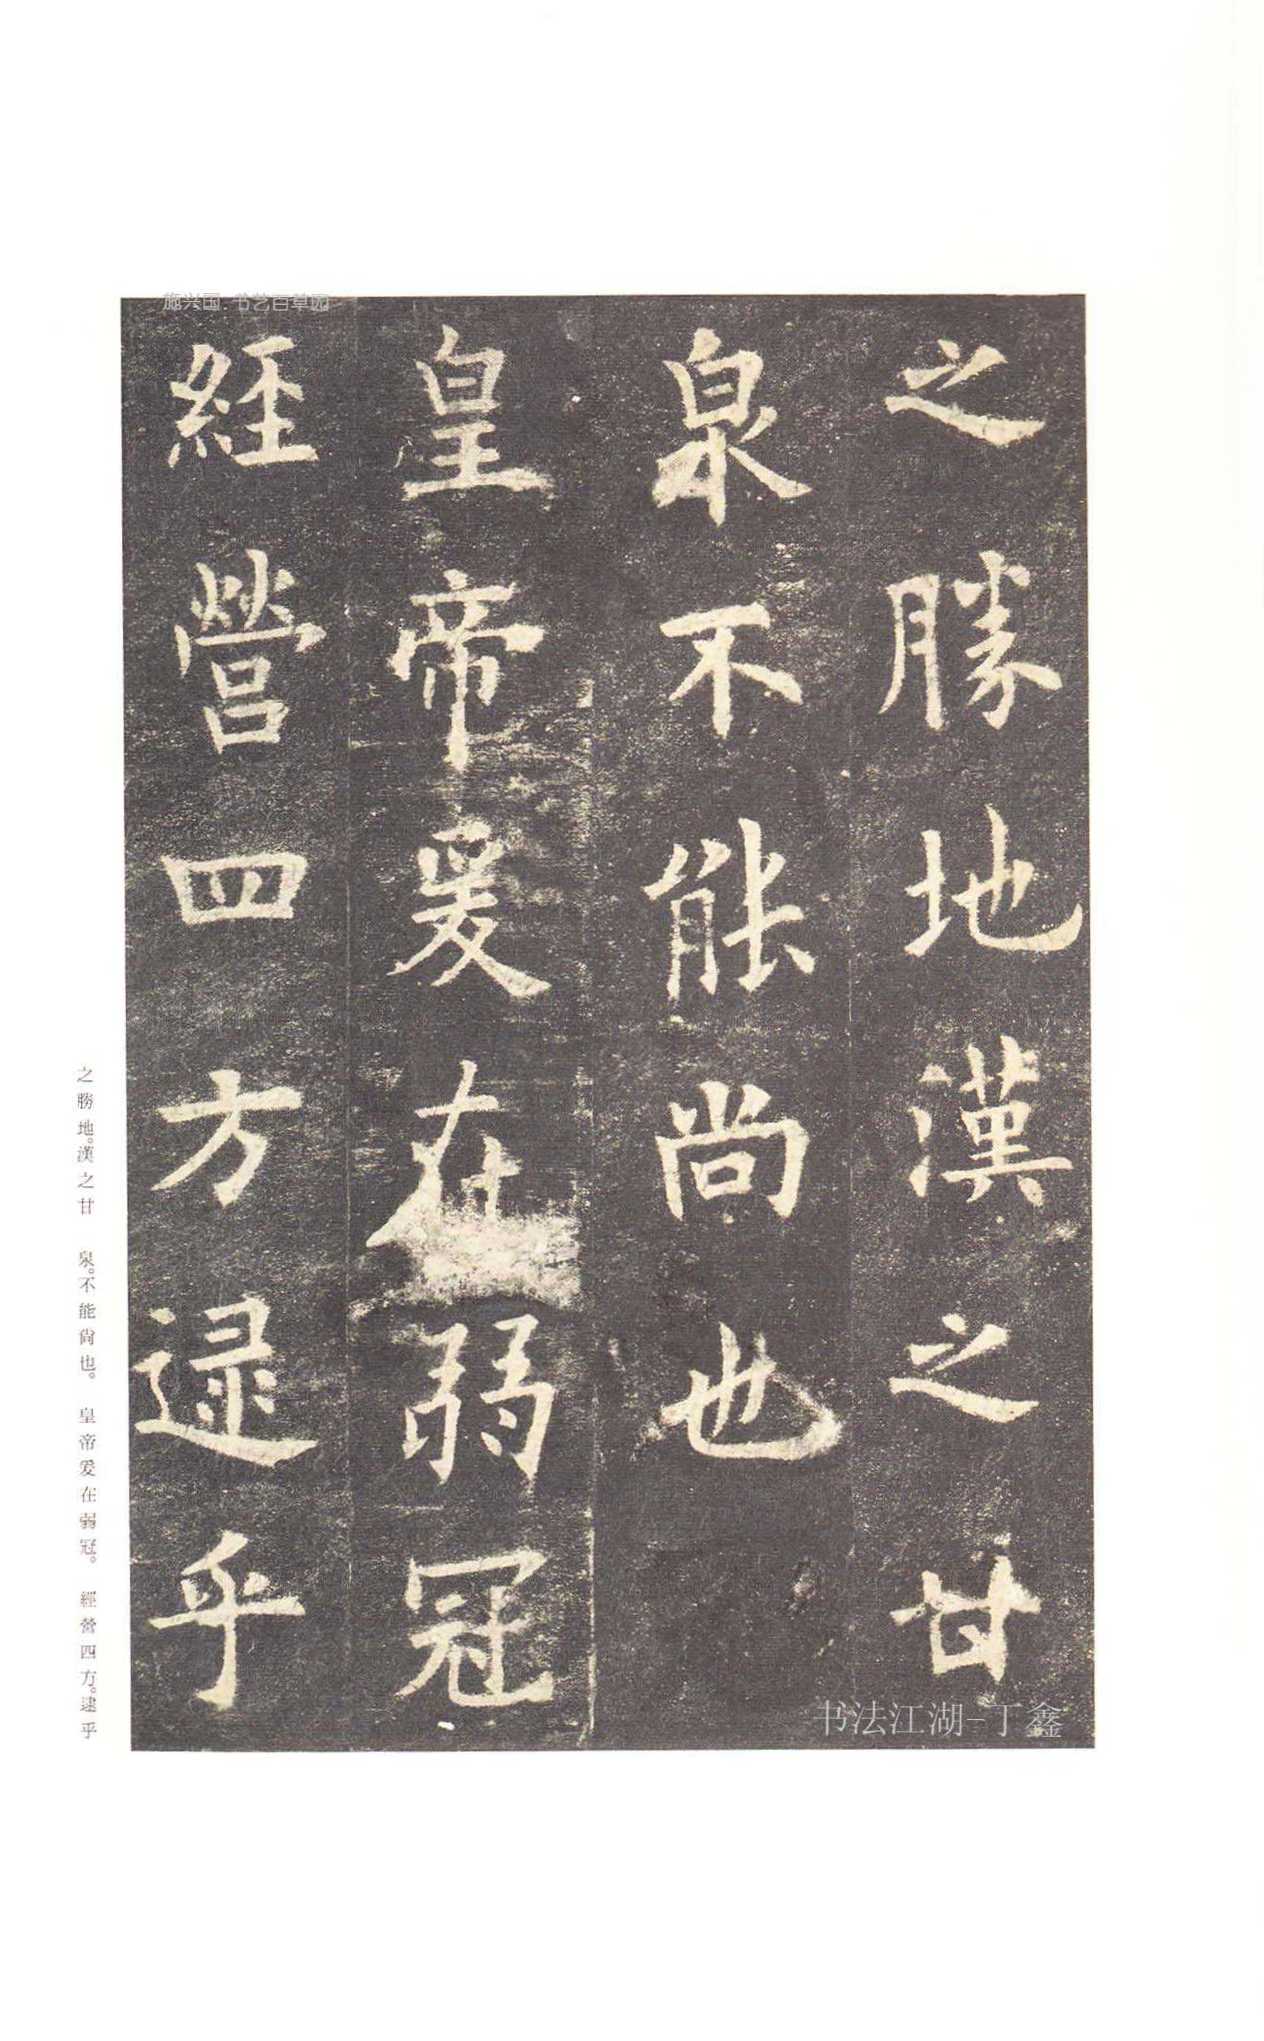 施兴国.书艺百草园
之勝地漢之甘
泉不能尚也
皇帝爰在弱冠
經營四方逮乎
书法江湖-丁鑫
之勝地。漢之甘 泉。不能尙也。 皇帝爰在弱冠。 經營四方。逮乎